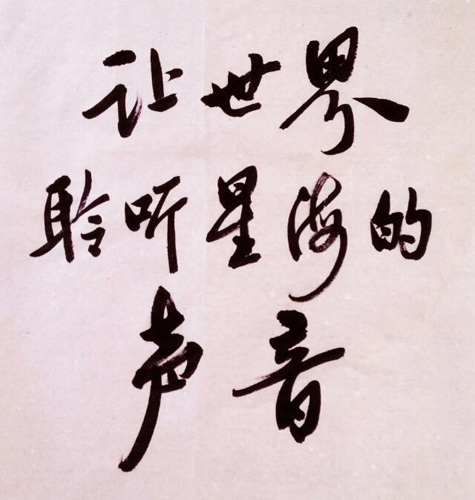 让世界
聆听星海的
声音